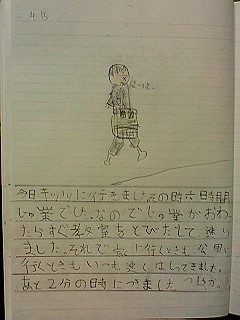 4.15
はーはー
今日キッソソに行きました。その時六時間
じゅ業でした。なのでじゅ業がおわっ
たらすぐ教室をとびだして速り
ました。それで家に行くときも公園に
行くときもいつも速くはしってきました。
あと2分の時につきました。つかれ